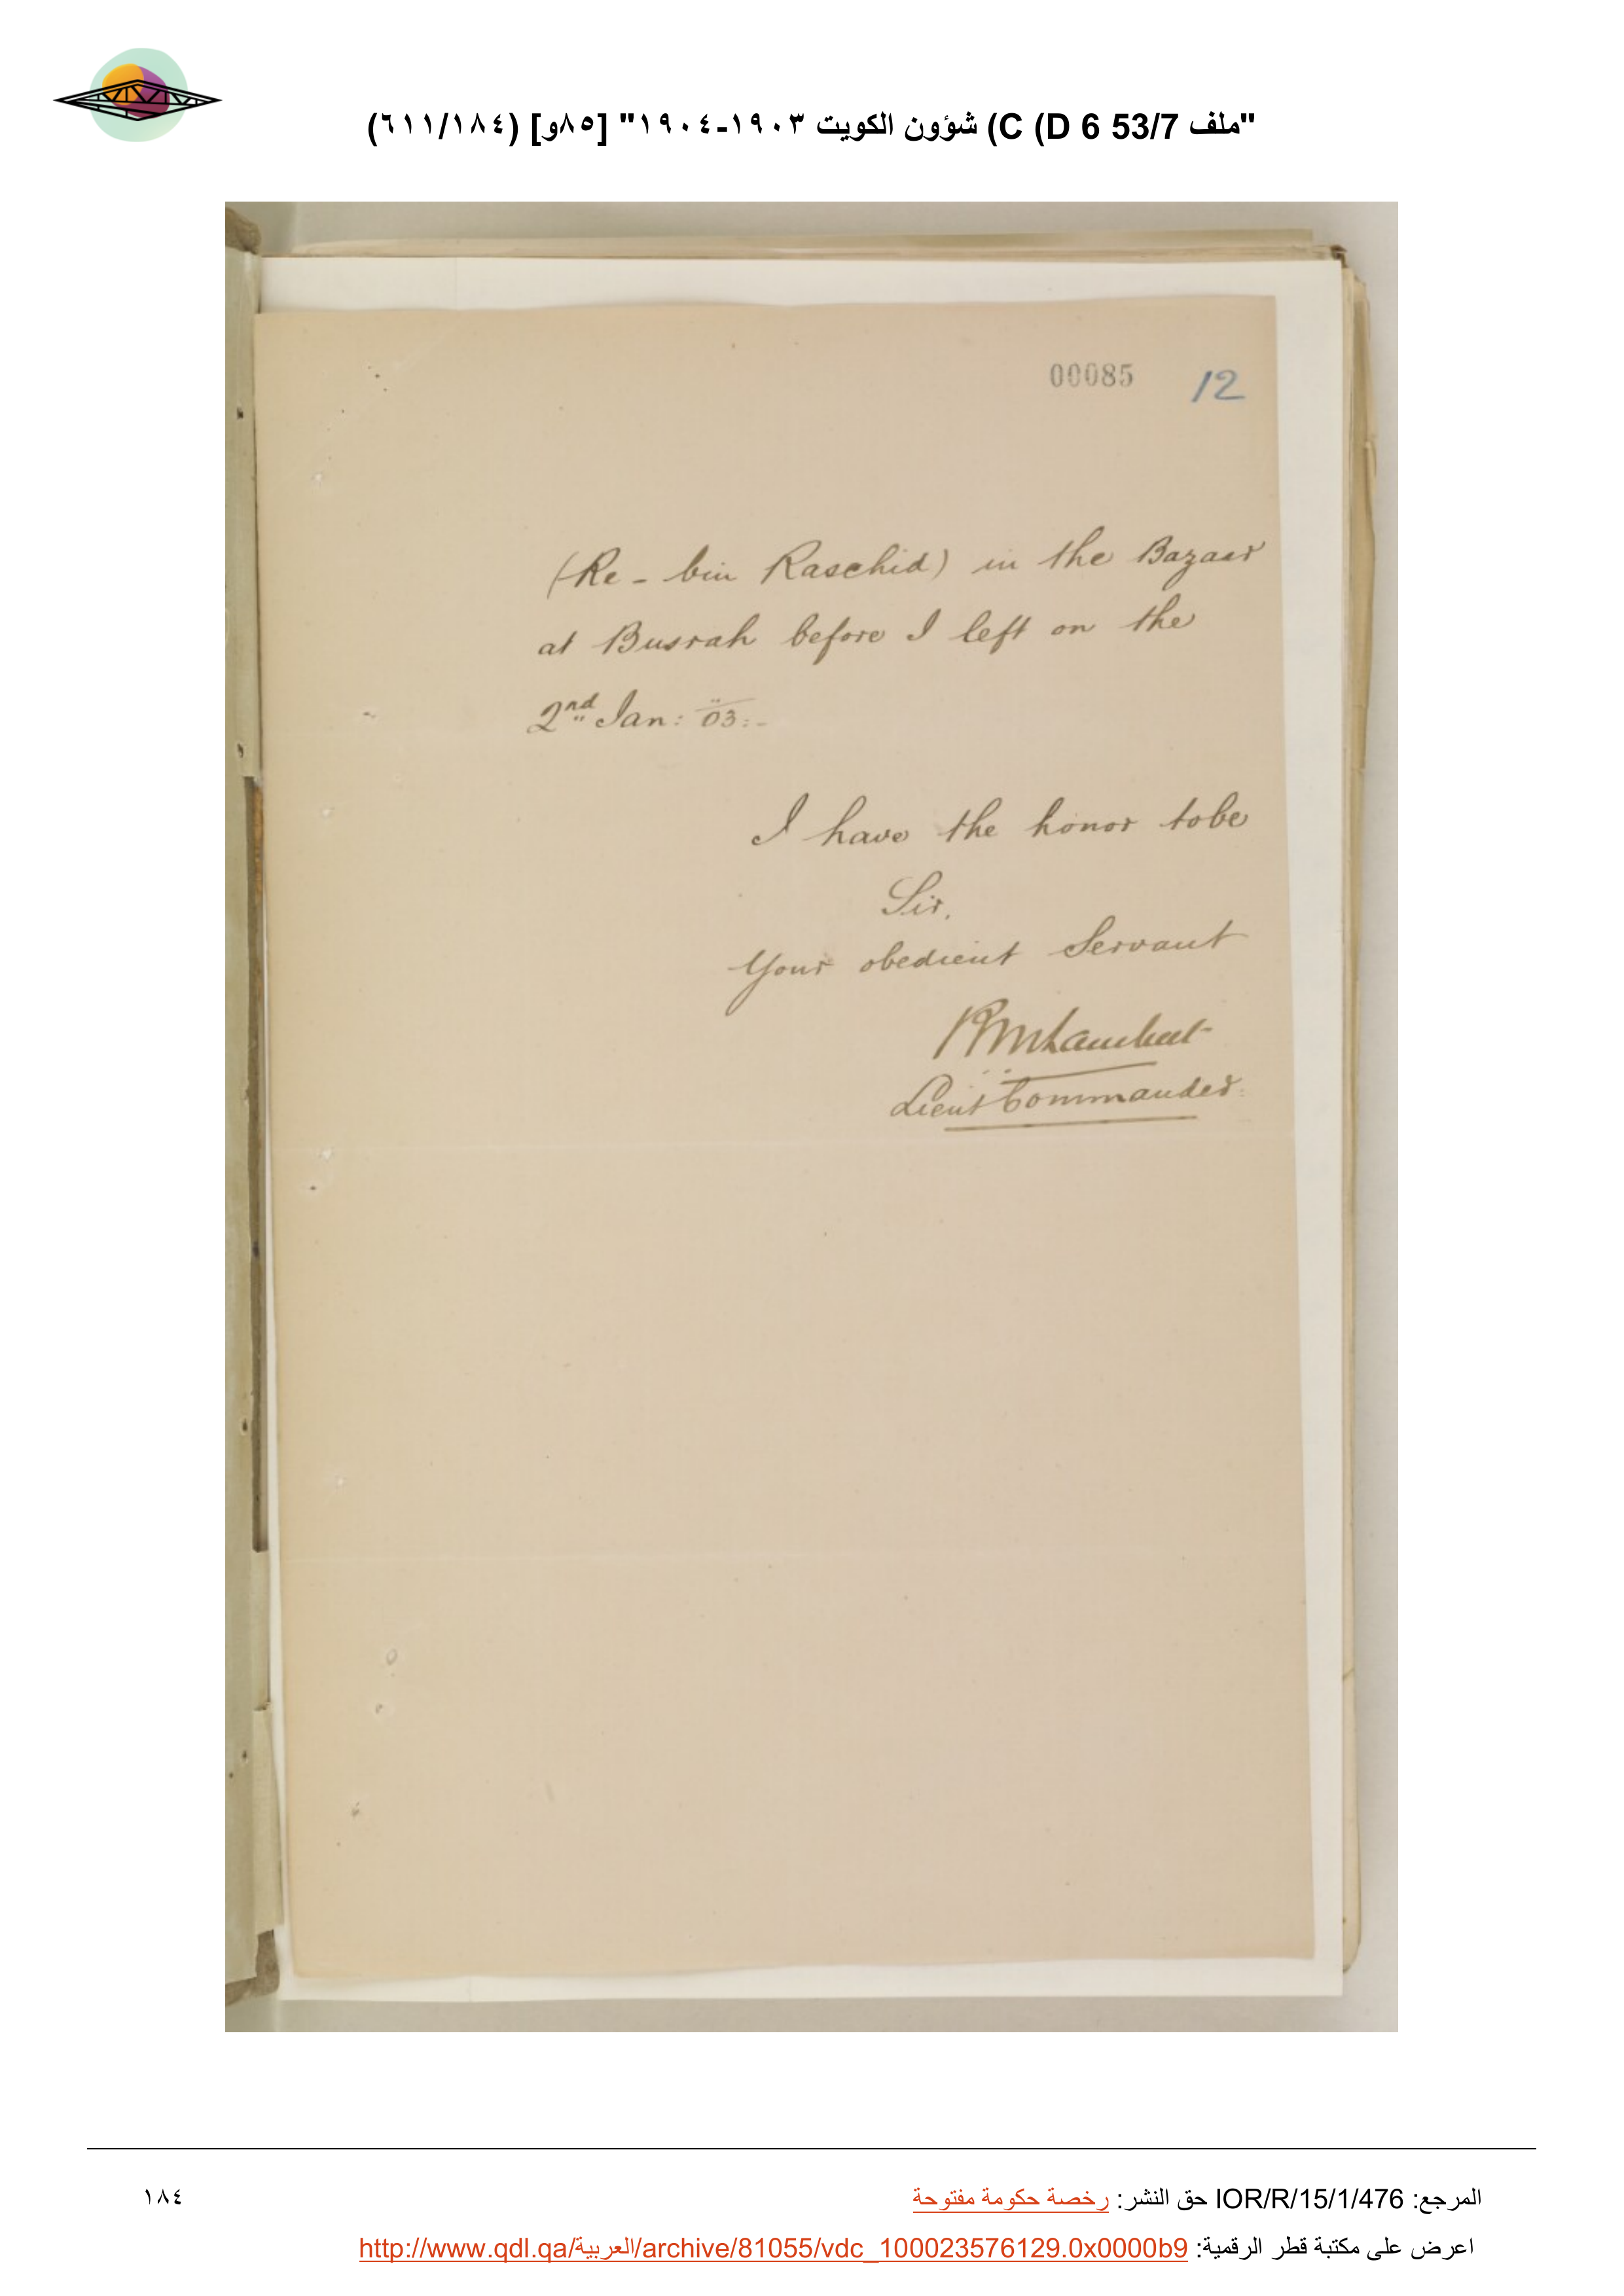 "ملف 53/7 C (D 6) شؤون الكويت ١٩٠٣-١٩٠٤" [٨٥و] (٦١١/١٨٤)
00085 12
(Re - bin Raschid) in the Bazaar
at Busrah before I left on the
2nd Jan: 03:-
I have the honor to be
Sir,
Your obedient Servant
RMLambert
Lieut Commander.
المرجع: IOR/R/15/1/476 حق النشر: رخصة حكومة مفتوحة
١٨٤
اعرض على مكتبة قطر الرقمية: http://www.qdl.qa/العربية/archive/81055/vdc_100023576129.0x0000b9